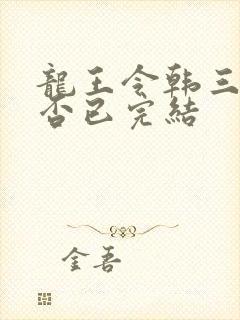 龍王令韩三
否已完結
金吾